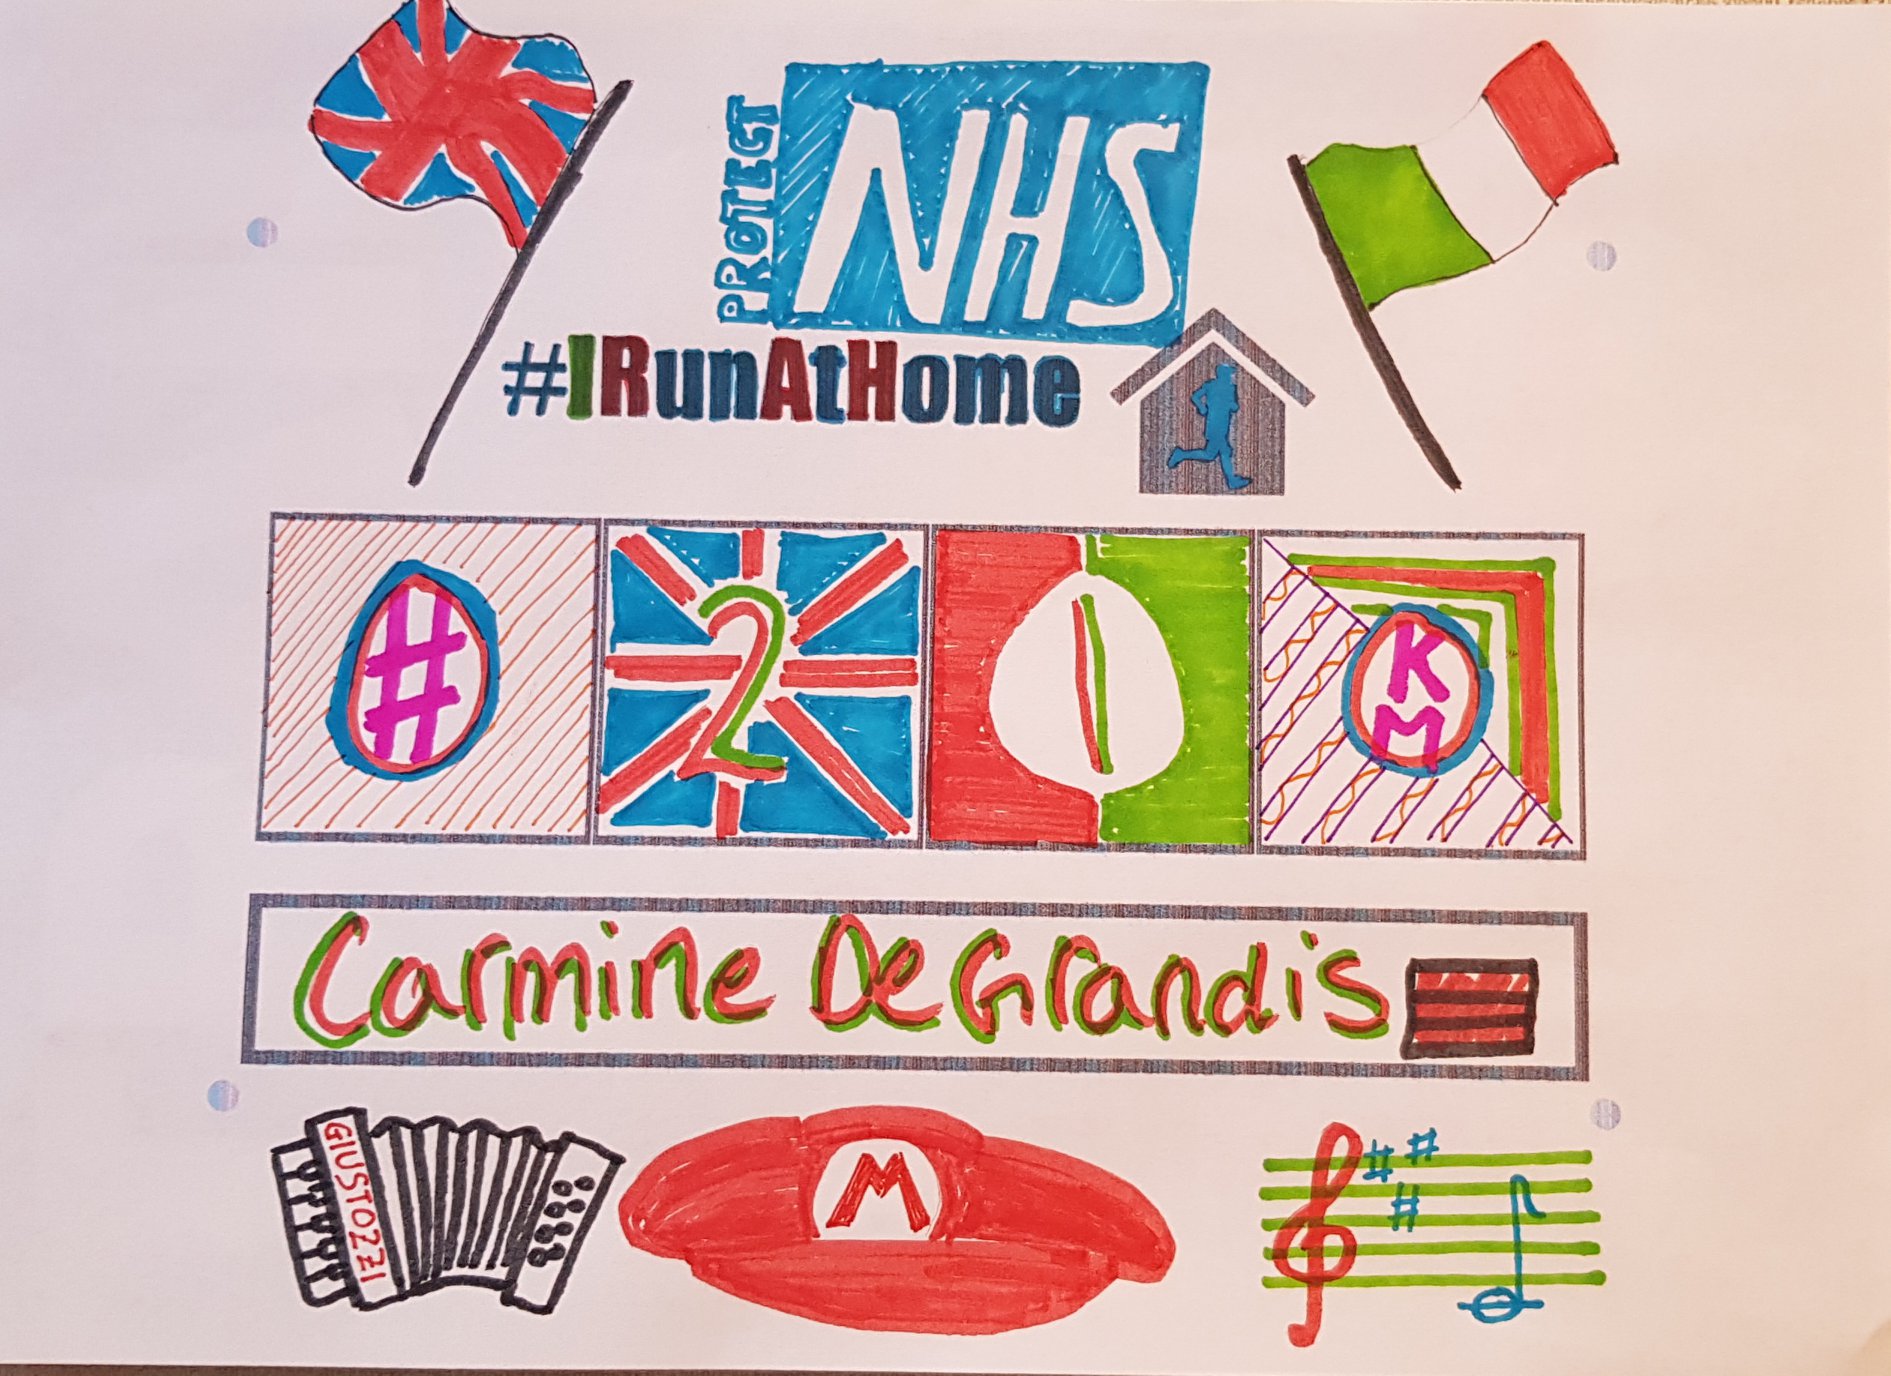 PROTECT
NHS
#IRunAtHome
# 2 1 KM
Carmine De Grandis
GIUSTOZZI
M